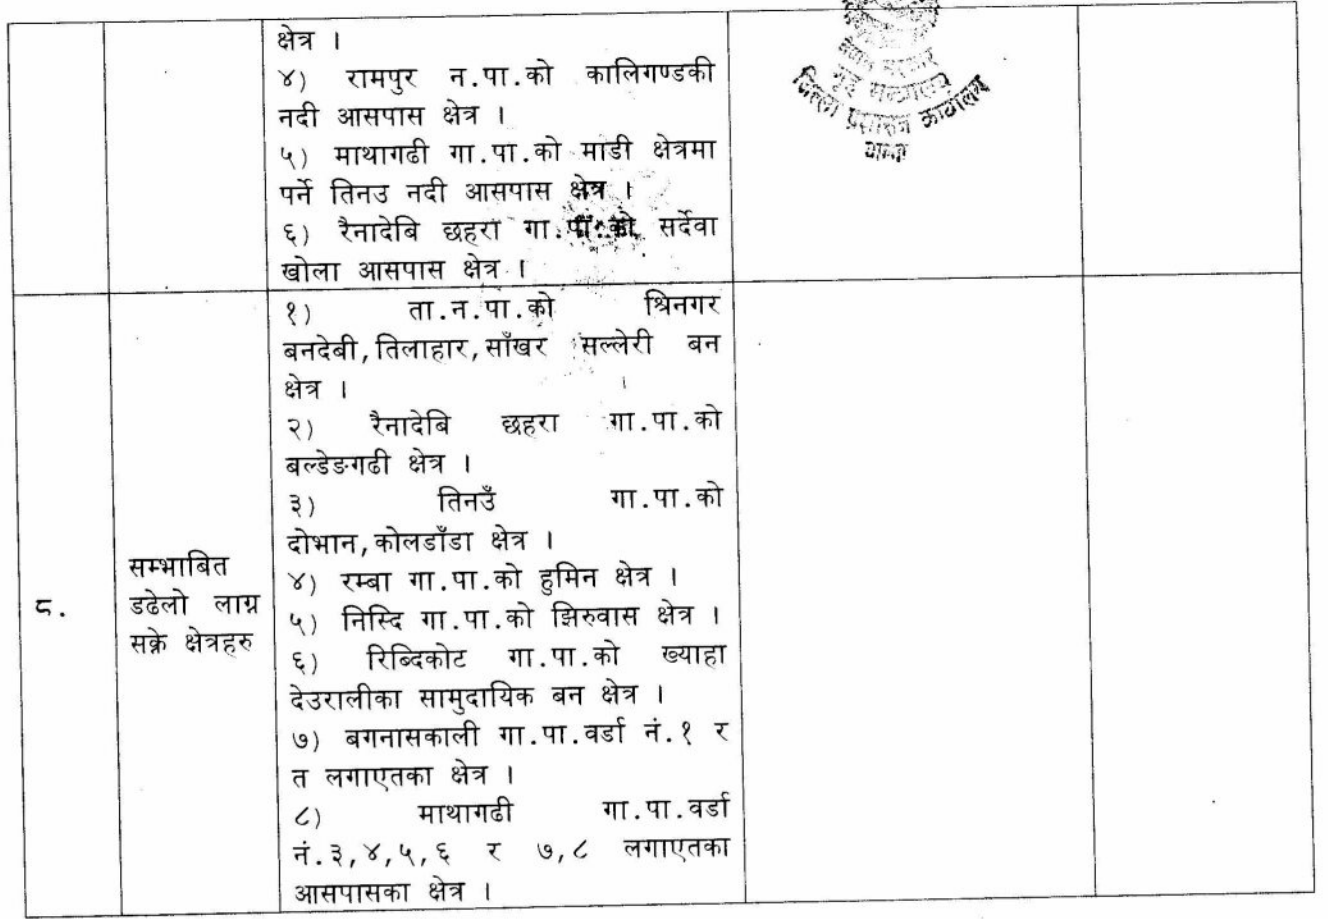 क्षेत्र ।
४) रामपुर न.पा.को कालिगण्डकी
नदी आसपास क्षेत्र ।
५) माथागढी गा.पा.को माडी क्षेत्रमा
पर्ने तिनउ नदी आसपास क्षेत्र ।
६) रैनादेबि छहरा गा.पा.को सर्देवा
खोला आसपास क्षेत्र ।
नेपाल सरकार
गृह मन्त्रालय
जिल्ला प्रशासन कार्यालय
पाल्पा
८.
सम्भाबित
डढेलो लाग्न
सक्ने क्षेत्रहरु
१) ता.न.पा.को श्रिनगर
बनदेबी,तिलाहार,साँखर सल्लेरी बन
क्षेत्र ।
२) रैनादेबि छहरा गा.पा.को
बल्डेङगढी क्षेत्र ।
३) तिनउँ गा.पा.को
दोभान,कोलडाँडा क्षेत्र ।
४) रम्बा गा.पा.को हुमिन क्षेत्र ।
५) निस्दि गा.पा.को झिरुवास क्षेत्र ।
६) रिब्दिकोट गा.पा.को ख्याहा
देउरालीका सामुदायिक बन क्षेत्र ।
७) बगनासकाली गा.पा.वर्डा नं.१ र
त लगाएतका क्षेत्र ।
८) माथागढी गा.पा.वर्डा
नं.३,४,५,६ र ७,८ लगाएतका
आसपासका क्षेत्र ।